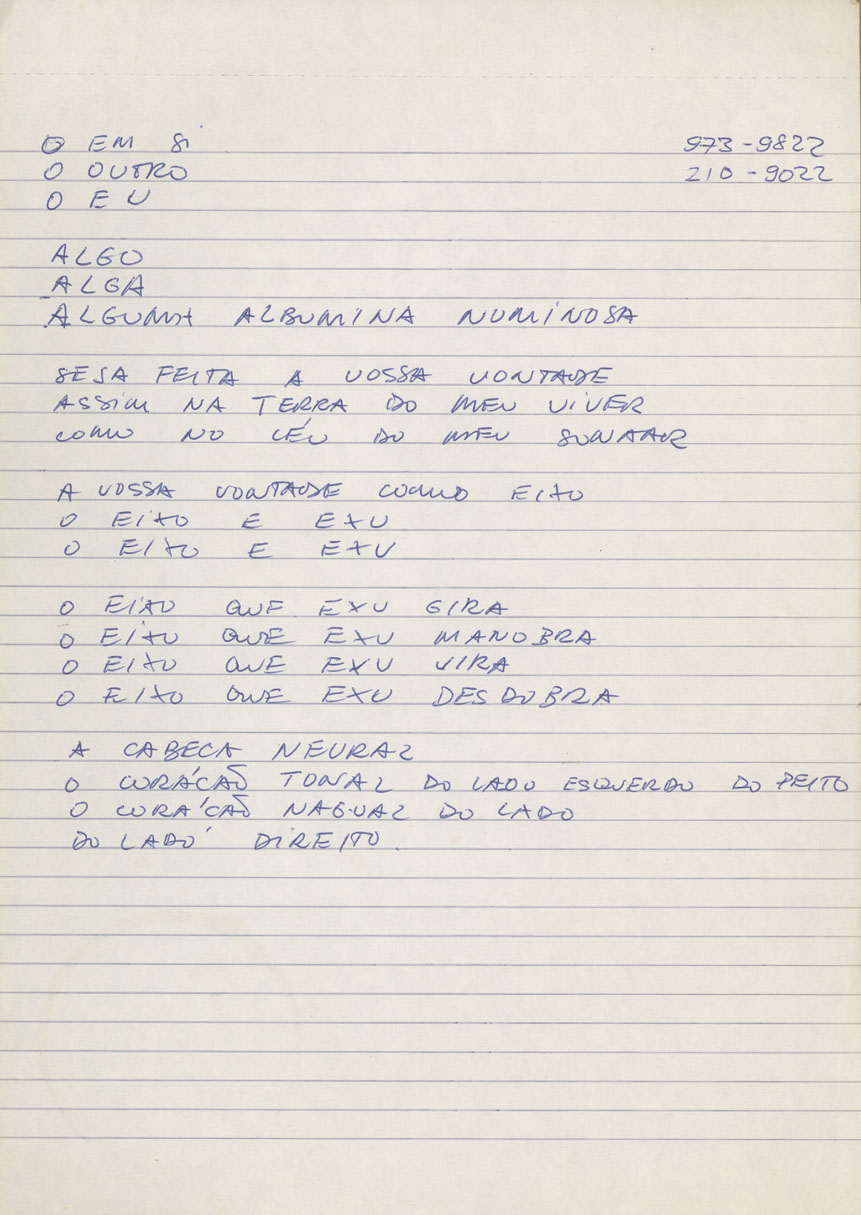 O EM SI
973-9822
O OUTRO
210-9022
O EU
ALGO
ALGA
ALGUMA ALBUMINA NUMINOSA
SEJA FEITA A VOSSA VONTADE
ASSIM NA TERRA DO MEU VIVER
COMO NO CÉU DO MEU SONHAR
A VOSSA VONTADE COMO EIXO
O EIXO E EXU
O EIXO E EXU
O EIXO QUE EXU GIRA
O EIXO QUE EXU MANOBRA
O EIXO QUE EXU VIRA
O EIXO QUE EXU DESDOBRA
A CABECA NEURAL
O CORÁCAÕ TONAL DO LADO ESQUERDO DO PEITO
O CORÁCAÕ NAGUAL DO LADO
DO LADO DIREITO.